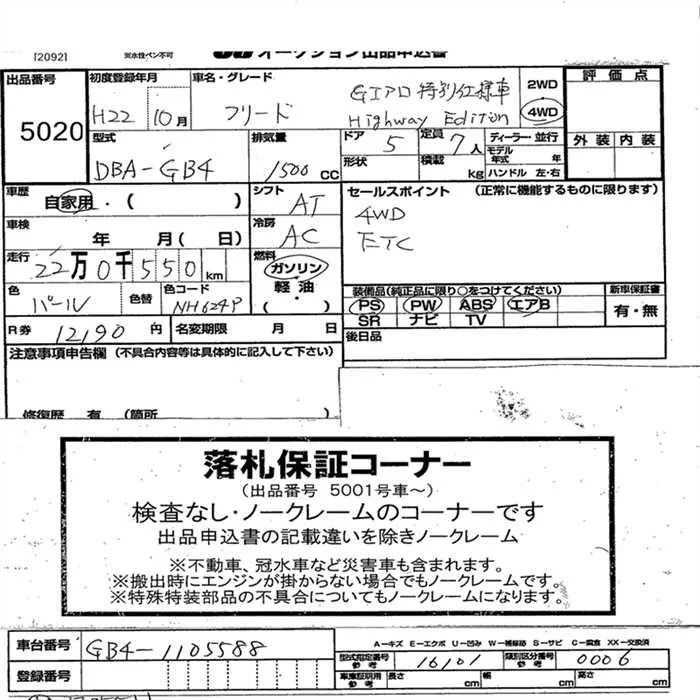 [2092]
出品番号
5020
初度登録年月
H22 10月
車名・グレード
フリード
Highway Edition
2WD
4WD
評価点
外装 内装
型式
DBA-GB4
排気量
1500 CC
ドア
5
定員
7人
形状
積載
kg
ディーラー 並行
モデル
年式 年
ハンドル 左・右
車歴
自家用・( )
シフト
AT
セールスポイント (正常に機能するものに限ります)
4WD
ETC
車検
年 月( 日)
冷房
AC
走行
22万0千550km
燃料
ガソリン
軽油・
( )
色
パール
色替
色コード
NH624P
装備品(純正品に限り○をつけてください)
PS PW ABS エアB
SR ナビ TV
新車保証書
有・無
R券 12190円
名変期限 月 日
後日品
注意事項申告欄 (不具合内容等は具体的に記入して下さい)
修復歴 有 (箇所
落札保証コーナー
(出品番号 5001号車~)
検査なし・ノークレームのコーナーです
出品申込書の記載違いを除きノークレーム
※不動車、冠水車など災害車も含まれます。
※搬出時にエンジンが掛からない場合でもノークレームです。
※特殊特装部品の不具合についてもノークレームになります。
車台番号
GB4-1105588
A-キズ E-エクボ U-凹み W-補修跡 S-サビ C-腐食 XX-交換済
型式指定番号
参考
16101
類別区分番号
参考
0006
登録番号
車庫証明用
参考
長さ cm 幅 cm 高さ cm